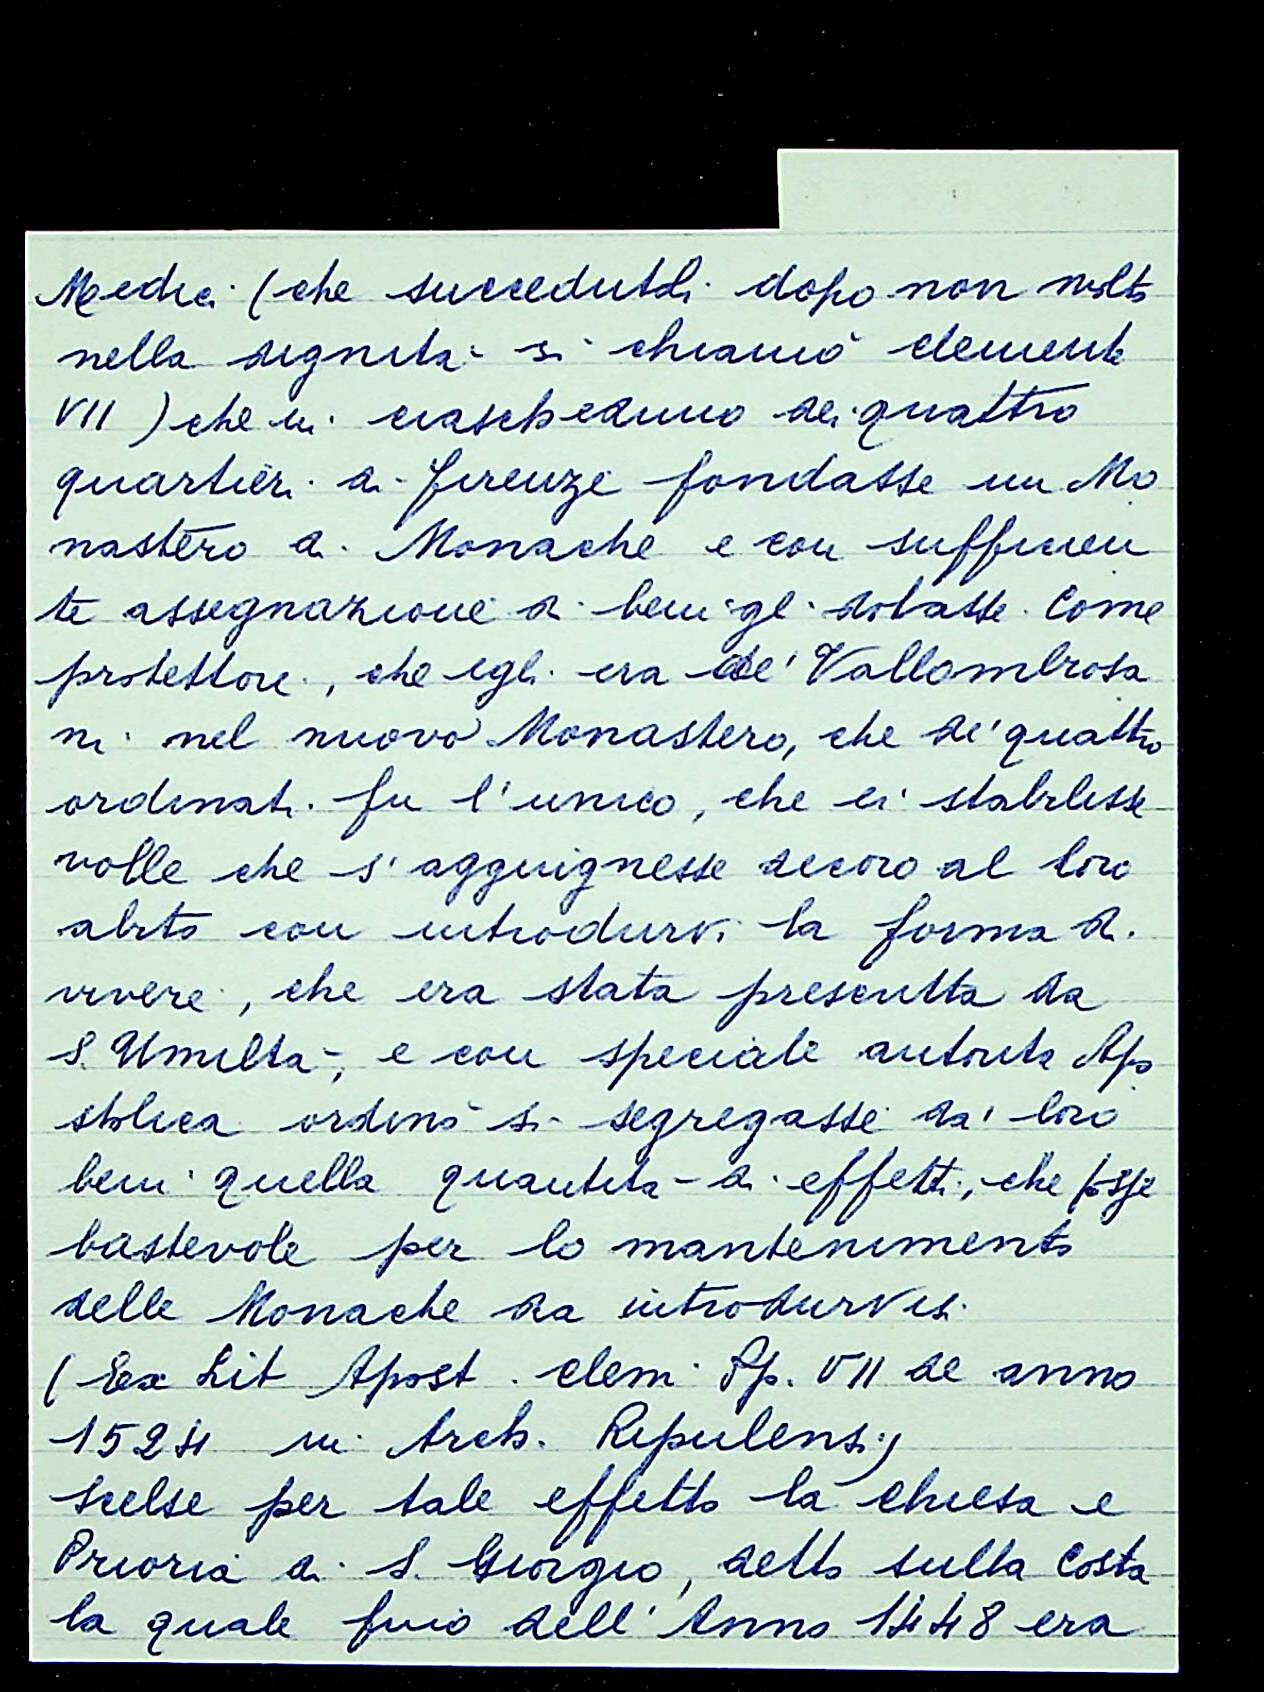 Medici (che succedutoli dopo non molto
nella dignità si chiamò clemente
VII) che in ciascheduno dei quattro
quartieri di firenze fondasse un Mo
nastero di Monache e con sufficien
te assegnazione di beni gl. dotasse. Come
protettore, che egli era de' Vallombrosa
ni nel nuovo Monastero, che de' quattro
ordinati fu l'unico, che ei stabilisse
volle che s'aggiugnesse decoro al loro
abito con introdurvi la forma di
vivere, che era stata prescritta da
S. Umiltà, e con speciale autorità Apo
stolica ordinò si segregasse da' loro
beni quella quantità di effetti, che fosse
bastevole per lo mantenimento
delle Monache da introdurvisi.
(Ex Lit Apost. clem. Pp. VII de anno
1524 in Arch. Ripulensi)
Scelse per tale effetto la chiesa e
Prioria di S. Giorgio, detto sulla Costa
la quale fino dell'Anno 1448 era